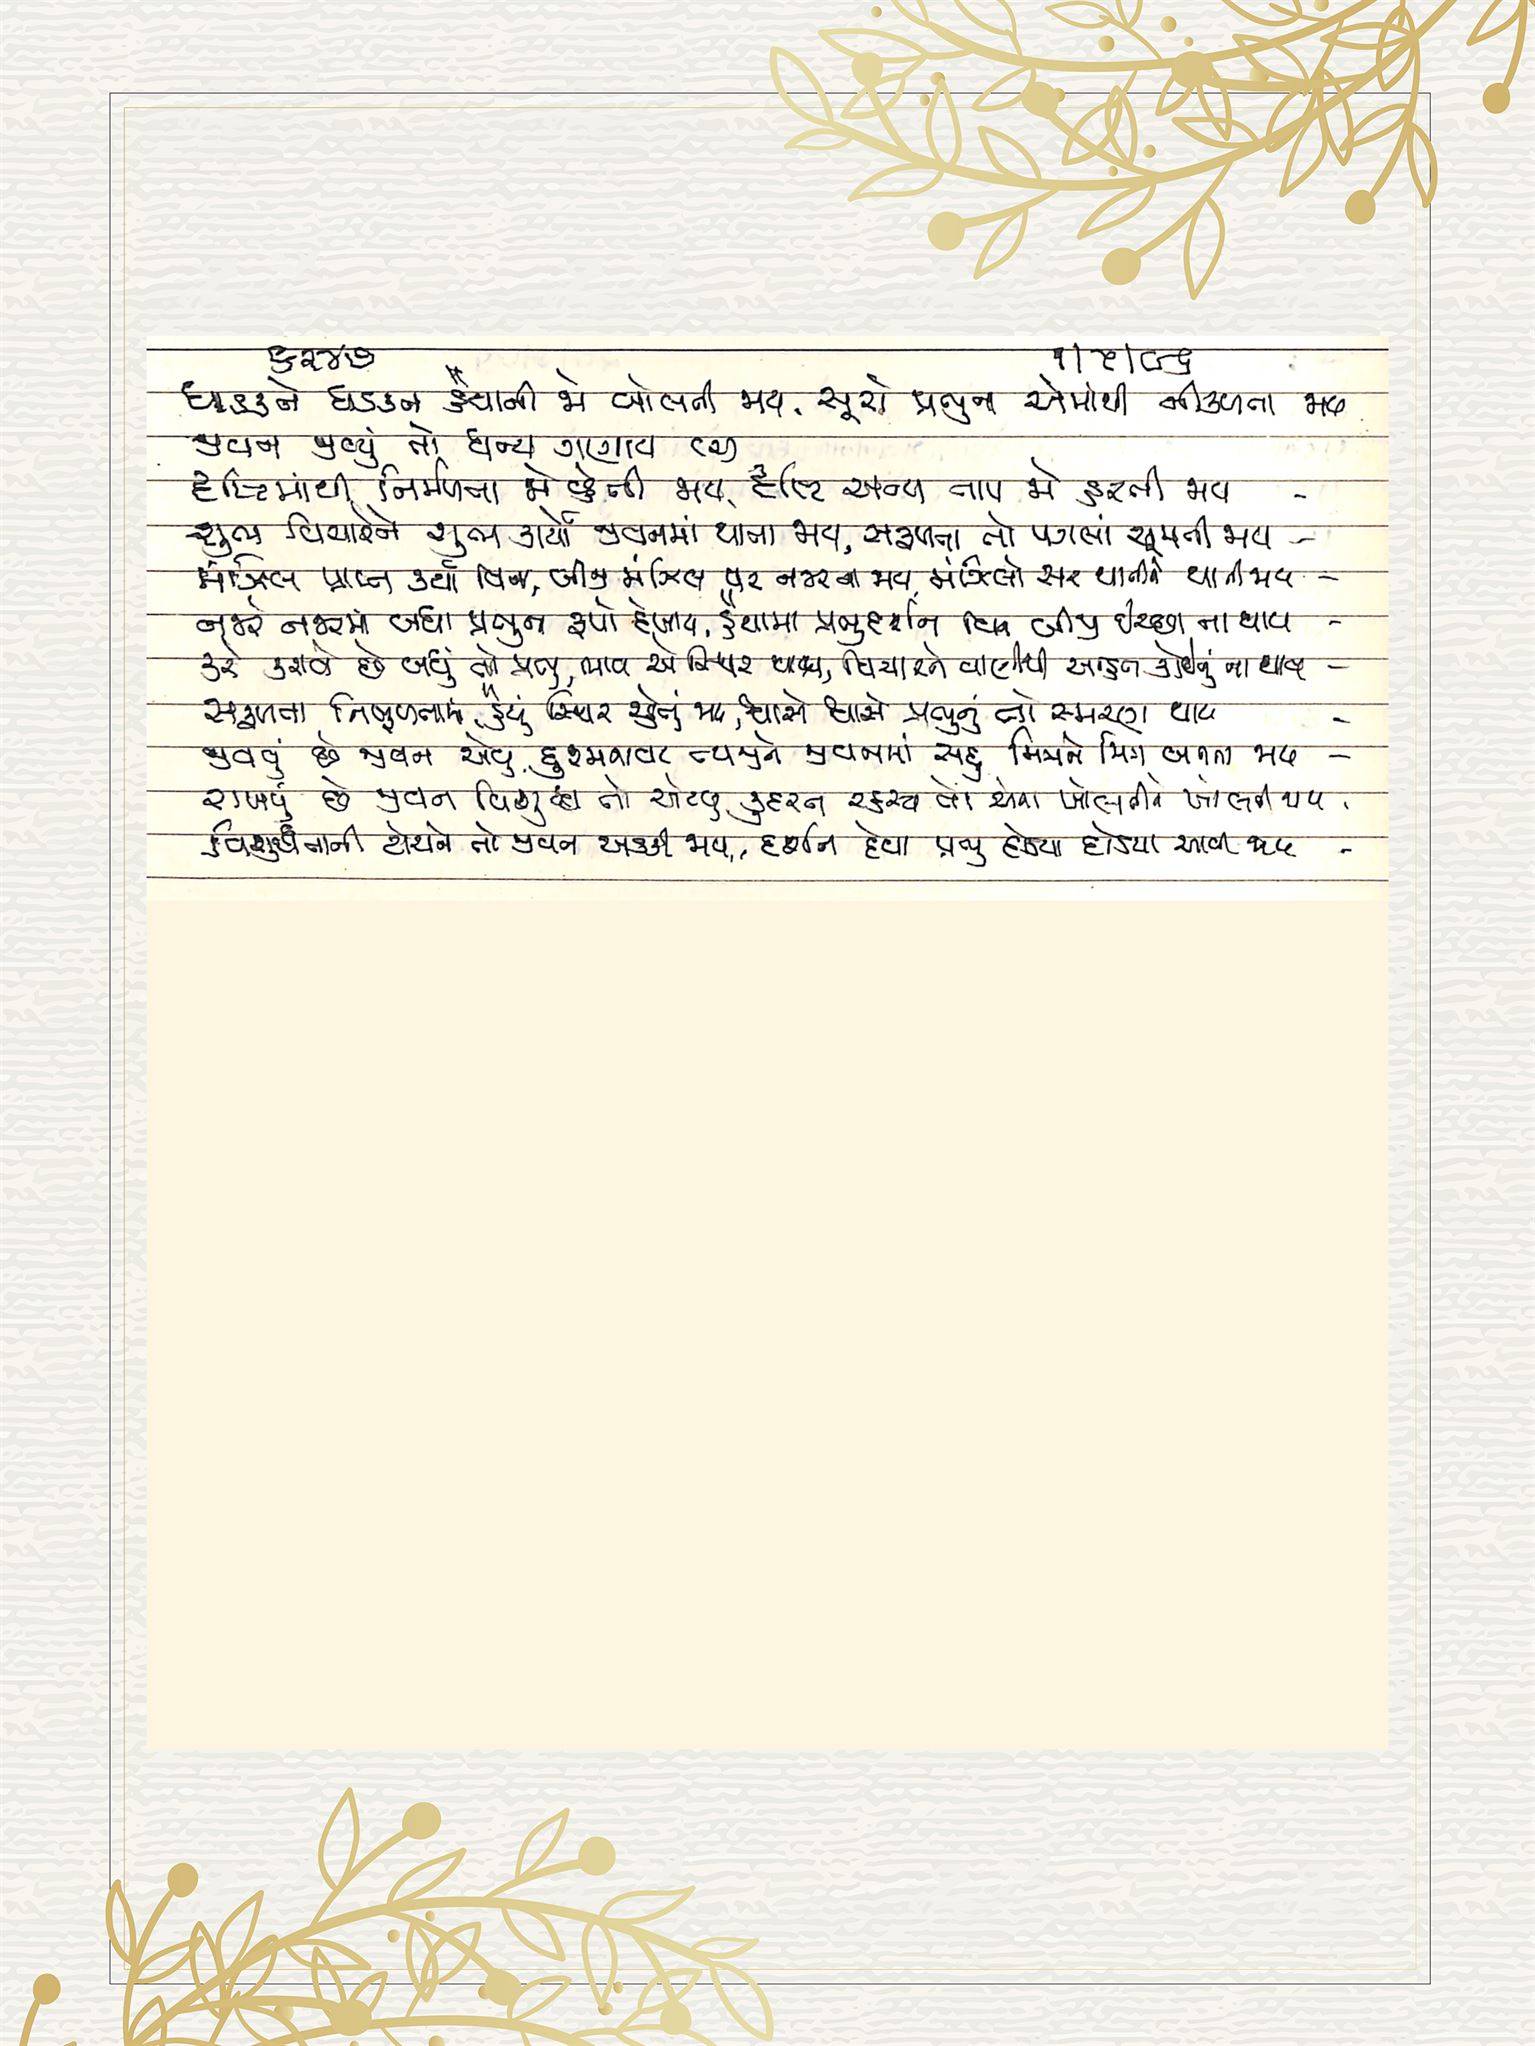 ૬૨૪૭ ૧|૫|૮૬
ધડકને ધડકન હૈયાની જો બોલતી જાય, સૂરો પ્રભુના એમાંથી નીકળતા જાય
જીવન જીવ્યું તો ધન્ય ગણાય (૨)
દૃષ્ટિમાંથી નિર્મળતા જો વહેતી જાય, દૃષ્ટિ અન્ય નાપ જો કરતી જાય -
શુભ વિચારોને શુભ કાર્યો જીવનમાં થાતા જાય, સફળતા તો પગલાં ચૂમતી જાય -
મંઝિલ પ્રાપ્ત કર્યા વિના, બીજી મંઝિલ પર નજર ના જાય, મંઝિલો સર થાતીને થાતી જાય -
નજરે નજરમાં બધા પ્રભુના રૂપો દેખાય, હૈયામાં પ્રભુદર્શન વિના બીજી ઇચ્છા ના થાય -
કરે કરાવે છે બધું તો પ્રભુ, ભાવ એ સ્થિર થાય, વિચારને વાણીથી આહત કોઈનું ના થાય -
સફળતા નિષ્ફળતામાં, હૈયું સ્થિર રહેતું જાય, શ્વાસે શ્વાસે પ્રભુનું તો સ્મરણ થાય -
જીવવું છે જીવન એવું, દુશ્મનાવટ ત્યજીને જીવનમાં સહુ મિત્રને મિત્ર બનતા જાય -
રાખવું છે જીવન વિશુદ્ધ તો એટલું, કુદરત રહસ્ય તો એના ખોલતીને ખોલતી જાય -
વિશુદ્ધતાની ટોચને તો જીવન અડકી જાય, દર્શન દેવા પ્રભુ દોડયા દોડયા આવી જાય -